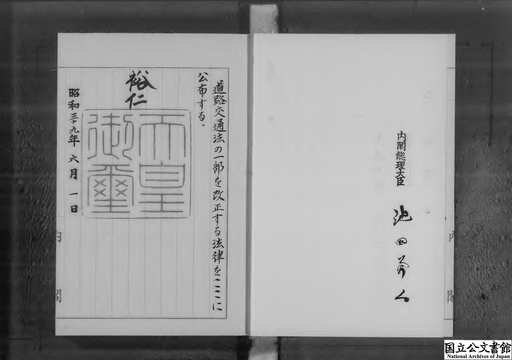 道路交通法の一部を改正する法律をここに
公布する。
裕仁
天皇
御璽
昭和三十九年六月一日
内閣総理大臣
池田勇人
内閣
内閣
国立公文書館
National Archives of Japan